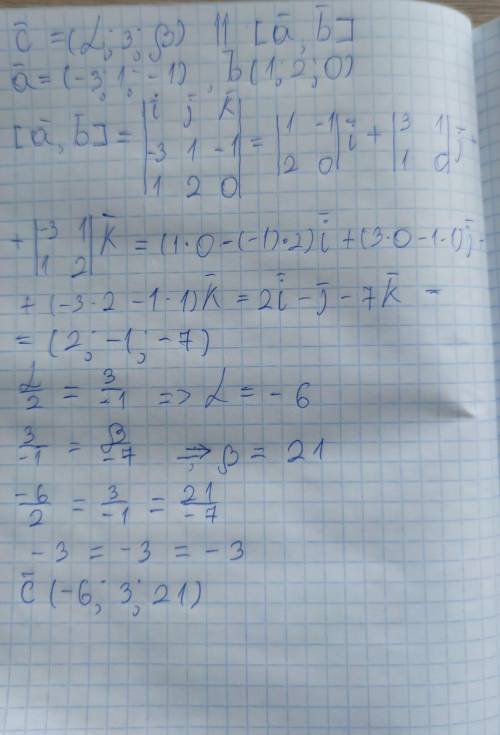 c̄ = (α; 3; β) || [ā, b̄]
ā = (-3; 1; -1), b̄ (1; 2; 0)
[ā, b̄] = |ī j̄ k̄; -3 1 -1; 1 2 0| = |1 -1; 2 0| ī + |3 1; 1 0| j̄ +
+ |-3 1; 1 2| k̄ = (1·0-(-1)·2) ī + (3·0-1·1) j̄ +
+ (-3·2-1·1) k̄ = 2ī - j̄ - 7k̄ =
= (2; -1; -7)
α/2 = 3/-1 => α = -6
3/-1 = β/-7 => β = 21
-6/2 = 3/-1 = 21/-7
-3 = -3 = -3
c̄ (-6; 3; 21)